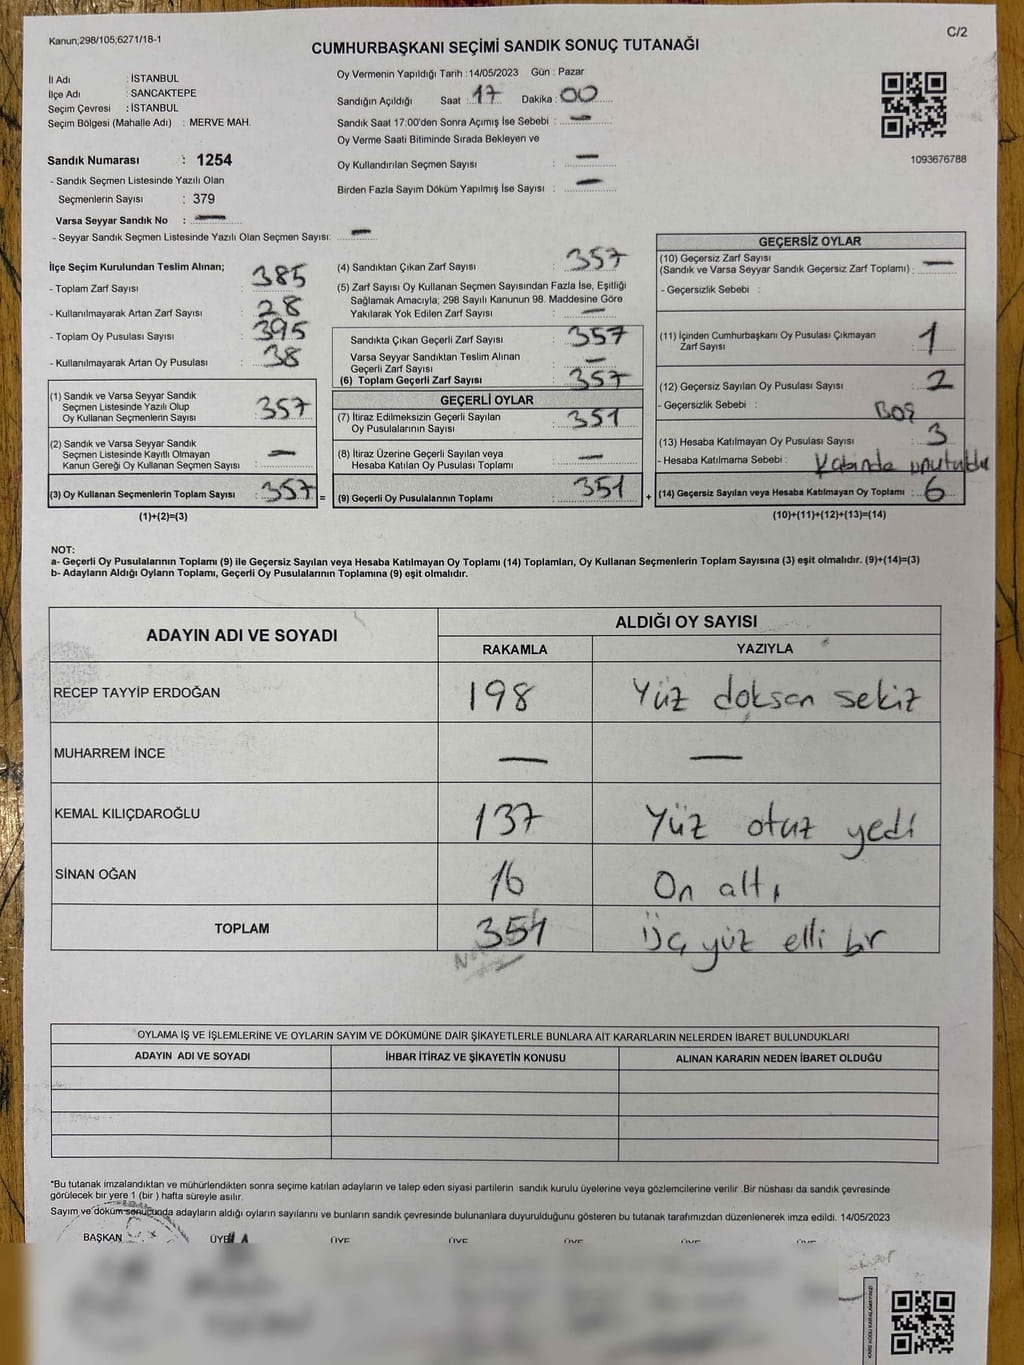 Kanun;298/105;6271/18-1
C/2
CUMHURBAŞKANI SEÇİMİ SANDIK SONUÇ TUTANAĞI
İl Adı : İSTANBUL
İlçe Adı : SANCAKTEPE
Seçim Çevresi : İSTANBUL
Seçim Bölgesi (Mahalle Adı) : MERVE MAH.
Sandık Numarası : 1254
- Sandık Seçmen Listesinde Yazılı Olan
Seçmenlerin Sayısı : 379
Varsa Seyyar Sandık No : —
- Seyyar Sandık Seçmen Listesinde Yazılı Olan Seçmen Sayısı: —
Oy Vermenin Yapıldığı Tarih :14/05/2023 Gün : Pazar
Sandığın Açıldığı Saat : 17 Dakika : 00
Sandık Saat 17:00'den Sonra Açımış İse Sebebi : —
Oy Verme Saati Bitiminde Sırada Bekleyen ve
Oy Kullandırılan Seçmen Sayısı : —
Birden Fazla Sayım Döküm Yapılmış İse Sayısı : —
1093676788
İlçe Seçim Kurulundan Teslim Alınan;
- Toplam Zarf Sayısı : 385
- Kullanılmayarak Artan Zarf Sayısı : 28
- Toplam Oy Pusulası Sayısı : 395
- Kullanılmayarak Artan Oy Pusulası : 38
(1) Sandık ve Varsa Seyyar Sandık
Seçmen Listesinde Yazılı Olup
Oy Kullanan Seçmenlerin Sayısı : 357
(2) Sandık ve Varsa Seyyar Sandık
Seçmen Listesinde Kayıtlı Olmayan
Kanun Gereği Oy Kullanan Seçmen Sayısı : —
(3) Oy Kullanan Seçmenlerin Toplam Sayısı : 357 =
(1)+(2)=(3)
(4) Sandıktan Çıkan Zarf Sayısı : 357
(5) Zarf Sayısı Oy Kullanan Seçmen Sayısından Fazla İse, Eşitliği
Sağlamak Amacıyla; 298 Sayılı Kanunun 98. Maddesine Göre
Yakılarak Yok Edilen Zarf Sayısı : —
Sandıkta Çıkan Geçerli Zarf Sayısı : 357
Varsa Seyyar Sandıktan Teslim Alınan
Geçerli Zarf Sayısı : —
(6) Toplam Geçerli Zarf Sayısı : 357
GEÇERLİ OYLAR
(7) İtiraz Edilmeksizin Geçerli Sayılan
Oy Pusulalarının Sayısı : 351
(8) İtiraz Üzerine Geçerli Sayılan veya
Hesaba Katılan Oy Pusulası Toplamı : —
(9) Geçerli Oy Pusulalarının Toplamı : 351 +
GEÇERSİZ OYLAR
(10) Geçersiz Zarf Sayısı
(Sandık ve Varsa Seyyar Sandık Geçersiz Zarf Toplamı) : —
- Geçersizlik Sebebi :
(11) İçinden Cumhurbaşkanı Oy Pusulası Çıkmayan
Zarf Sayısı : 1
(12) Geçersiz Sayılan Oy Pusulası Sayısı : 2
- Geçersizlik Sebebi : BOŞ
(13) Hesaba Katılmayan Oy Pusulası Sayısı : 3
- Hesaba Katılmama Sebebi : Kabinde unutuldu
(14) Geçersiz Sayılan veya Hesaba Katılmayan Oy Toplamı : 6
(10)+(11)+(12)+(13)=(14)
NOT:
a- Geçerli Oy Pusulalarının Toplamı (9) ile Geçersiz Sayılan veya Hesaba Katılmayan Oy Toplamı (14) Toplamları, Oy Kullanan Seçmenlerin Toplam Sayısına (3) eşit olmalıdır. (9)+(14)=(3)
b- Adayların Aldığı Oyların Toplamı, Geçerli Oy Pusulalarının Toplamına (9) eşit olmalıdır.
ADAYIN ADI VE SOYADI
ALDIĞI OY SAYISI
RAKAMLA YAZIYLA
RECEP TAYYİP ERDOĞAN 198 Yüz doksan sekiz
MUHARREM İNCE — —
KEMAL KILIÇDAROĞLU 137 Yüz otuz yedi
SİNAN OĞAN 16 On altı
TOPLAM 351 Üç yüz elli bir
OYLAMA İŞ VE İŞLEMLERİNE VE OYLARIN SAYIM VE DÖKÜMÜNE DAİR ŞİKAYETLERLE BUNLARA AİT KARARLARIN NELERDEN İBARET BULUNDUKLARI
ADAYIN ADI VE SOYADI İHBAR İTİRAZ VE ŞİKAYETİN KONUSU ALINAN KARARIN NEDEN İBARET OLDUĞU
*Bu tutanak imzalandıktan ve mühürlendikten sonra seçime katılan adayların ve talep eden siyasi partilerin sandık kurulu üyelerine veya gözlemcilerine verilir .Bir nüshası da sandık çevresinde
görülecek bir yere 1 (bir ) hafta süreyle asılır.
Sayım ve döküm sonucunda adayların aldığı oyların sayılarını ve bunların sandık çevresinde bulunanlara duyurulduğunu gösteren bu tutanak tarafımızdan düzenlenerek imza edildi. 14/05/2023
BAŞKAN ÜYE ÜYE ÜYE ÜYE ÜYE ÜYE